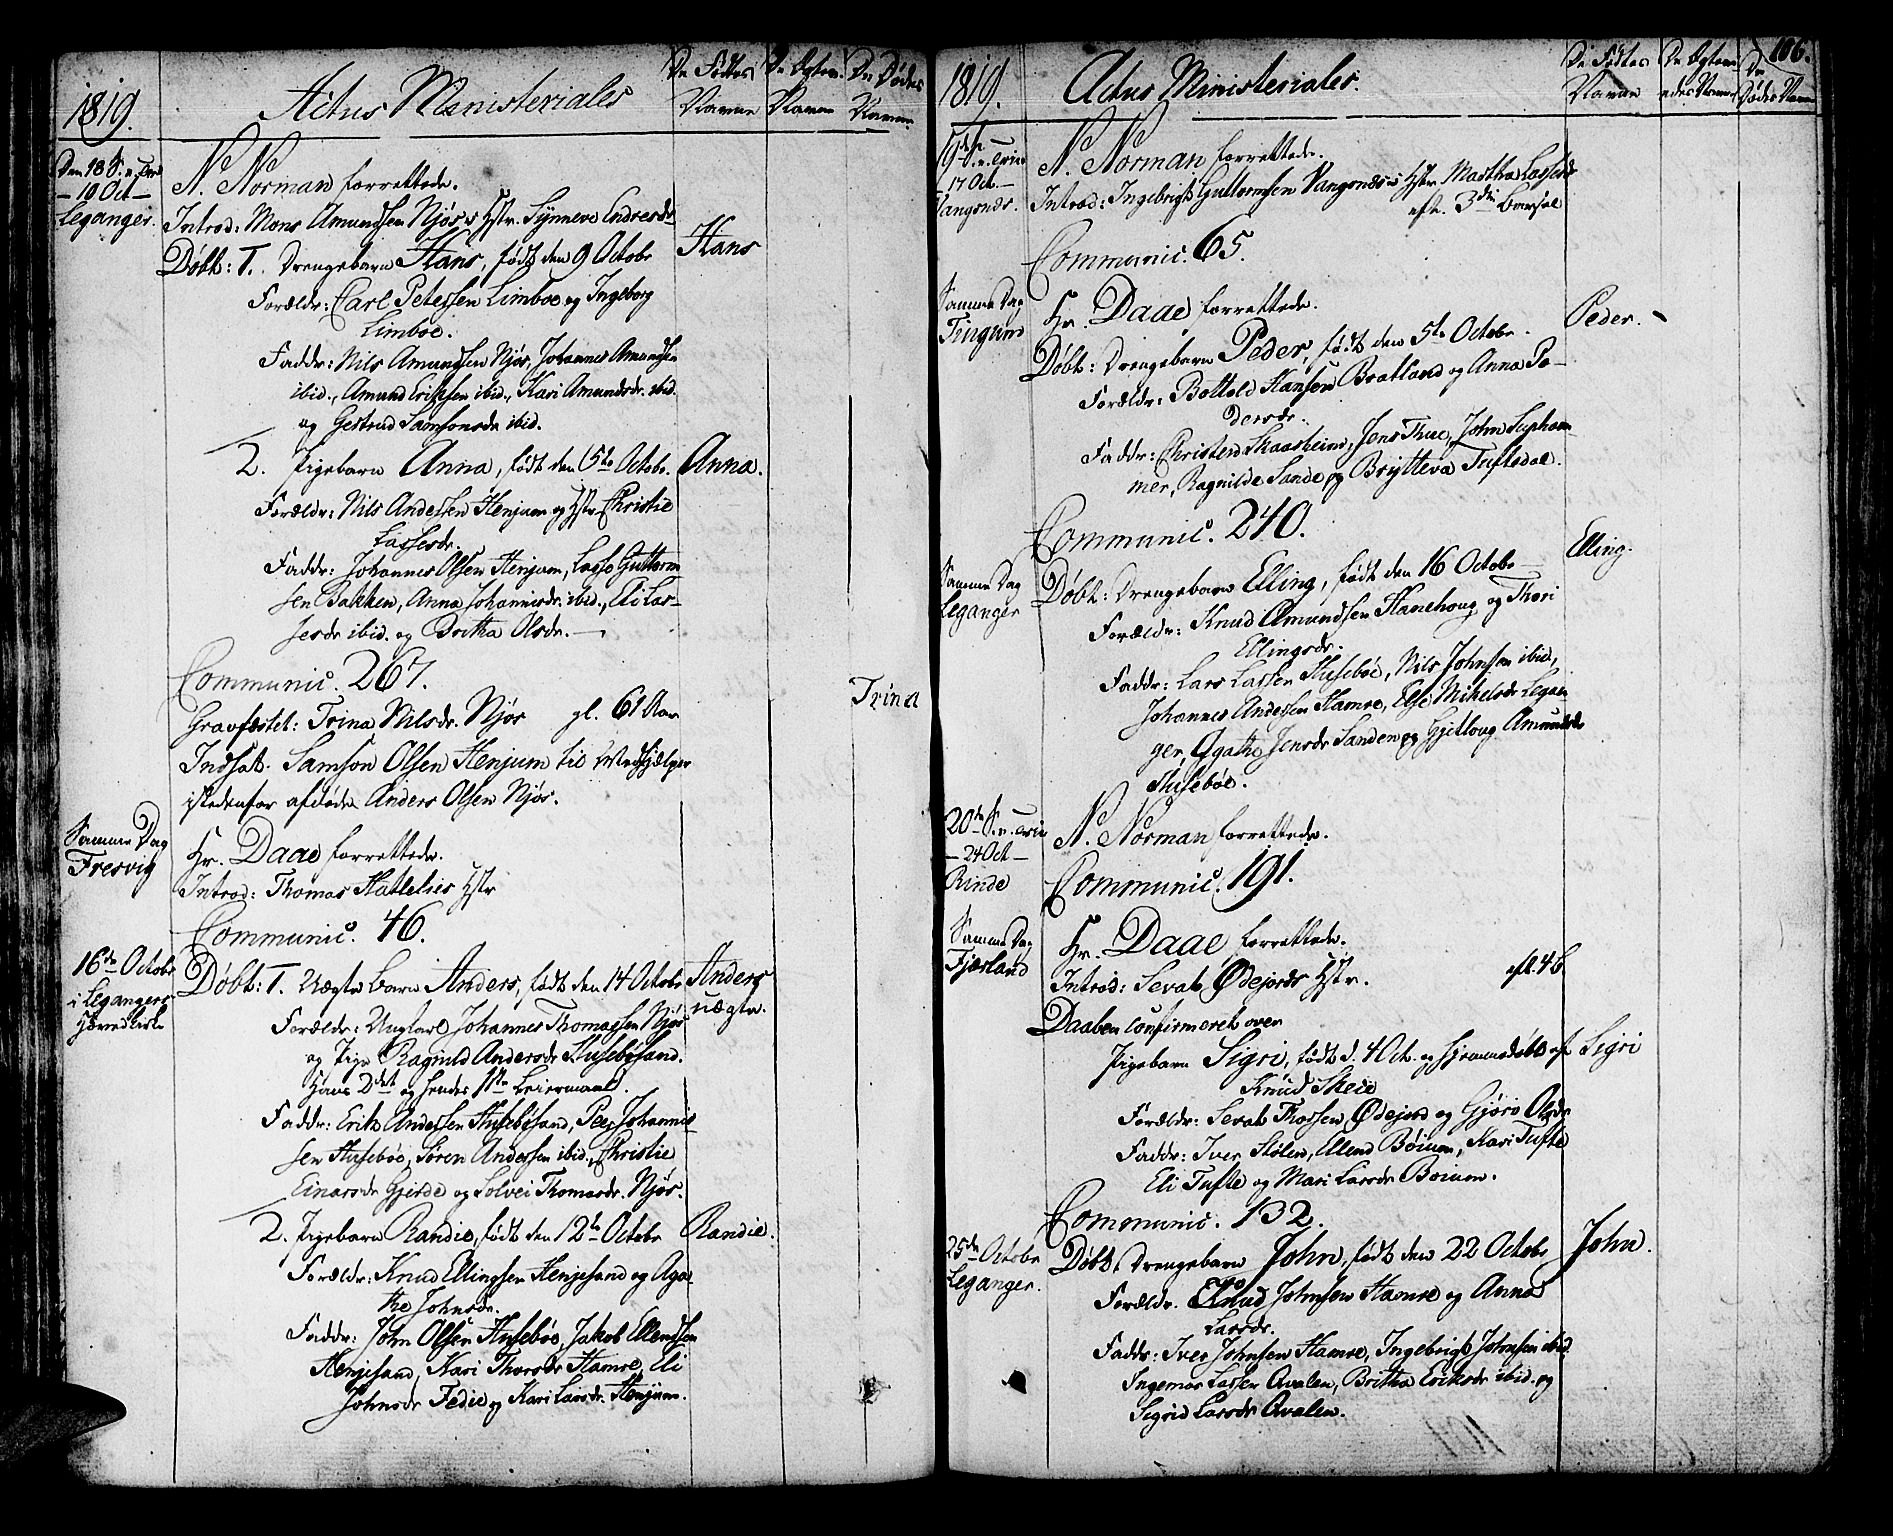 1819.
Actus Ministeriales
De Fødtes
Navne
De Døde
Navne
Den 18 S. e. Tred
— 10 Oct —
Leganger.
N. Norman forrettede.
Introd: Mons Amundsen Njøs's Hstr. Synneve Endresdr
Døbt: 1. Drengebarn Hans, født den 9 Octobr
Hans
Forældr: Carl Petersen Limboe og Ingeborg
Limboe.
Faddr: Nils Amundsen Njøs, Johannes Amundsen
ibid., Amund Eriksen ibid., Kari Amundsdr. ibid.
og Gertrud Samsonsdr ibid.
2. Pigebarn Anna, født den 5te Octobr.
Anna.
Forældr: Nils Andersen Henjum og Hstr Christie
Lassesdr.
Faddr: Johannes Olsen Henjum, Lasse Guttorm
sen Bakken, Anna Johannisdr. ibid., Eli Las-
sesdr ibid. og Britha Olsdr.
Communic. 267.
Gravfæstet: Trina Nilsdr. Njøs gl. 61 Aar
Trina
Indsat. Samson Olsen Henjum til Medhjælper
istedenfor afdøde Anders Olsen Njøs.
Samme Dag
Fresvig
Hr. Daae forrettede.
Introd: Thomas Hatlelies Hstr
Communic. 46.
16de Octobr
i Leganger
Hovedkirke
Døbt: 1. Uægte Barn Anders, født den 14 Octobr
Anders
uægte.
Forældr: Ungkarl Johannes Thomassen Njøs
og Pige Ragnild Andersdr Husebøsand.
Hans 2det og hendes 1ste Leiermaal.
Faddr: Erik Andersen Husebøsand, Peer Johannis
sen Husebøe, Søren Andersen ibid., Christie
Einarsdr Gjerde og Solvei Thomasdr. Njøs.
2. Pigebarn Randie, født den 12te Octobr
Randie.
Forældr: Knud Ellingsen Henjesand og Aga-
the Johnsdr.
Faddr: John Olsen Husebøe, Jakob Ellendsen
Henjesand, Kari Thorsdr Hamre, Eli
Johnsdr Fedie og Kari Larsdr. Henjum.
1819.
Actus Ministeriales.
De Fødtes
Navne
De
Dødes Navne
106.
19de S. e. Trin
— 17 Oct. —
Vangsnæs.
N. Norman forrettede.
Introd: Ingebrigt Guttormsen Vangsnæs's Hstr Martha Lassesdr
eft. 3die Barsel
Communic. 65.
Samme Dag
Tingum
Hr. Daae forrettede.
Døbt: Drengebarn Peder, født den 5te Octobr.
Peder.
Forældr: Bottold Hansen Bratland og Anna Pe-
dersdr.
Faddr: Christen Skaasheim, Jens Thue, John Supham
mer, Ragnilde Sande og Brytteva Tuftedal.
Communic. 240.
Samme Dag
Leganger
Døbt: Drengebarn Elling, født den 16 Octobr
Elling.
Forældr: Knud Amundsen Hanehoug og Thori
Ellingsdr.
Faddr: Lars Lassen Husebøe, Nils Johnsen ibid,
Johannes Andersen Hamre, Else Mikelsdr Legan
ger, Agathe Jensdr Sanden og Gjetloug Amundsdr
Husebøe.
20de S. e. Trin
— 24 Oct —
Rinde
N. Norman forrettede.
Communic. 191.
Samme Dag
Fjærland
Hr. Daae forrettede.
Introd: Sevat Ødejords Hstr. eft. 4 B
Daaben confirmeret over
Pigebarn Sigri, født d. 4 Oct. og hjemmedøbt af
Sigri
Knud Skeie
Forældr: Sevat Thorsen Ødejord og Gjøro Olsdr
Faddr: Iver Stølen, Ellend Bøium, Kari Tufte
Eli Tufte og Mari Larsdr Boium.
Communic. 132.
25de Octobr
Leganger.
Døbt, Drengebarn John, født den 22 Octobr
John.
Forældr. Knud Johnsen Hamre og Anna
Larsdr.
Faddr: Iver Johnsen Hamre, Ingebrigt Johnsen ibid.
Ingemar Lassen Qvalen, Britha Eriksdr ibid. og
Sigrid Larsdr Qvalen.